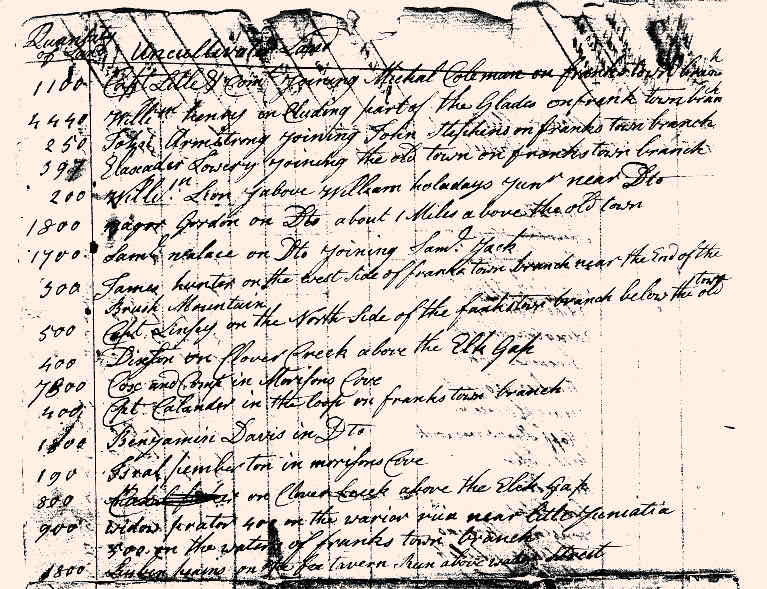 Quantity of Land | Uncultivated Land
1100 Capt Litle & Comp Joining Michal Coleman on franks town branch
4440 Willm henry in Cluding part of the Glades on frank town branch
250 John Armstrong Joining John Stephens on franks town branch
397 Lowery Joining the old town on franks town branch
200 Willim Lion above William holadays Junr near Dto
1800 major Gordon on Dto about 1 Miles above the old town
1700 Saml walace on Dto Joining Saml Jack
300 James hunter on the west Side of franks town branch near the End of the
Brush Mountain
500 Capt Linsey on the North Side of the franks town branch below the old town
400 on Clover Creek above the Elk Gap
7800 Cox and Comp in Morisons Cove
400 Cpt Calander in the loop on franks town branch
1800 Benjamin Davis in Dto
190 Isral pemberton in morisons Cove
800 on Clover Creek above the Elek Gap
900 widow prator 400 on the warior run near litle Juniatia
500 on the waters of franks town branch
1800 Ruben hains on the fox tavern Run above water Street